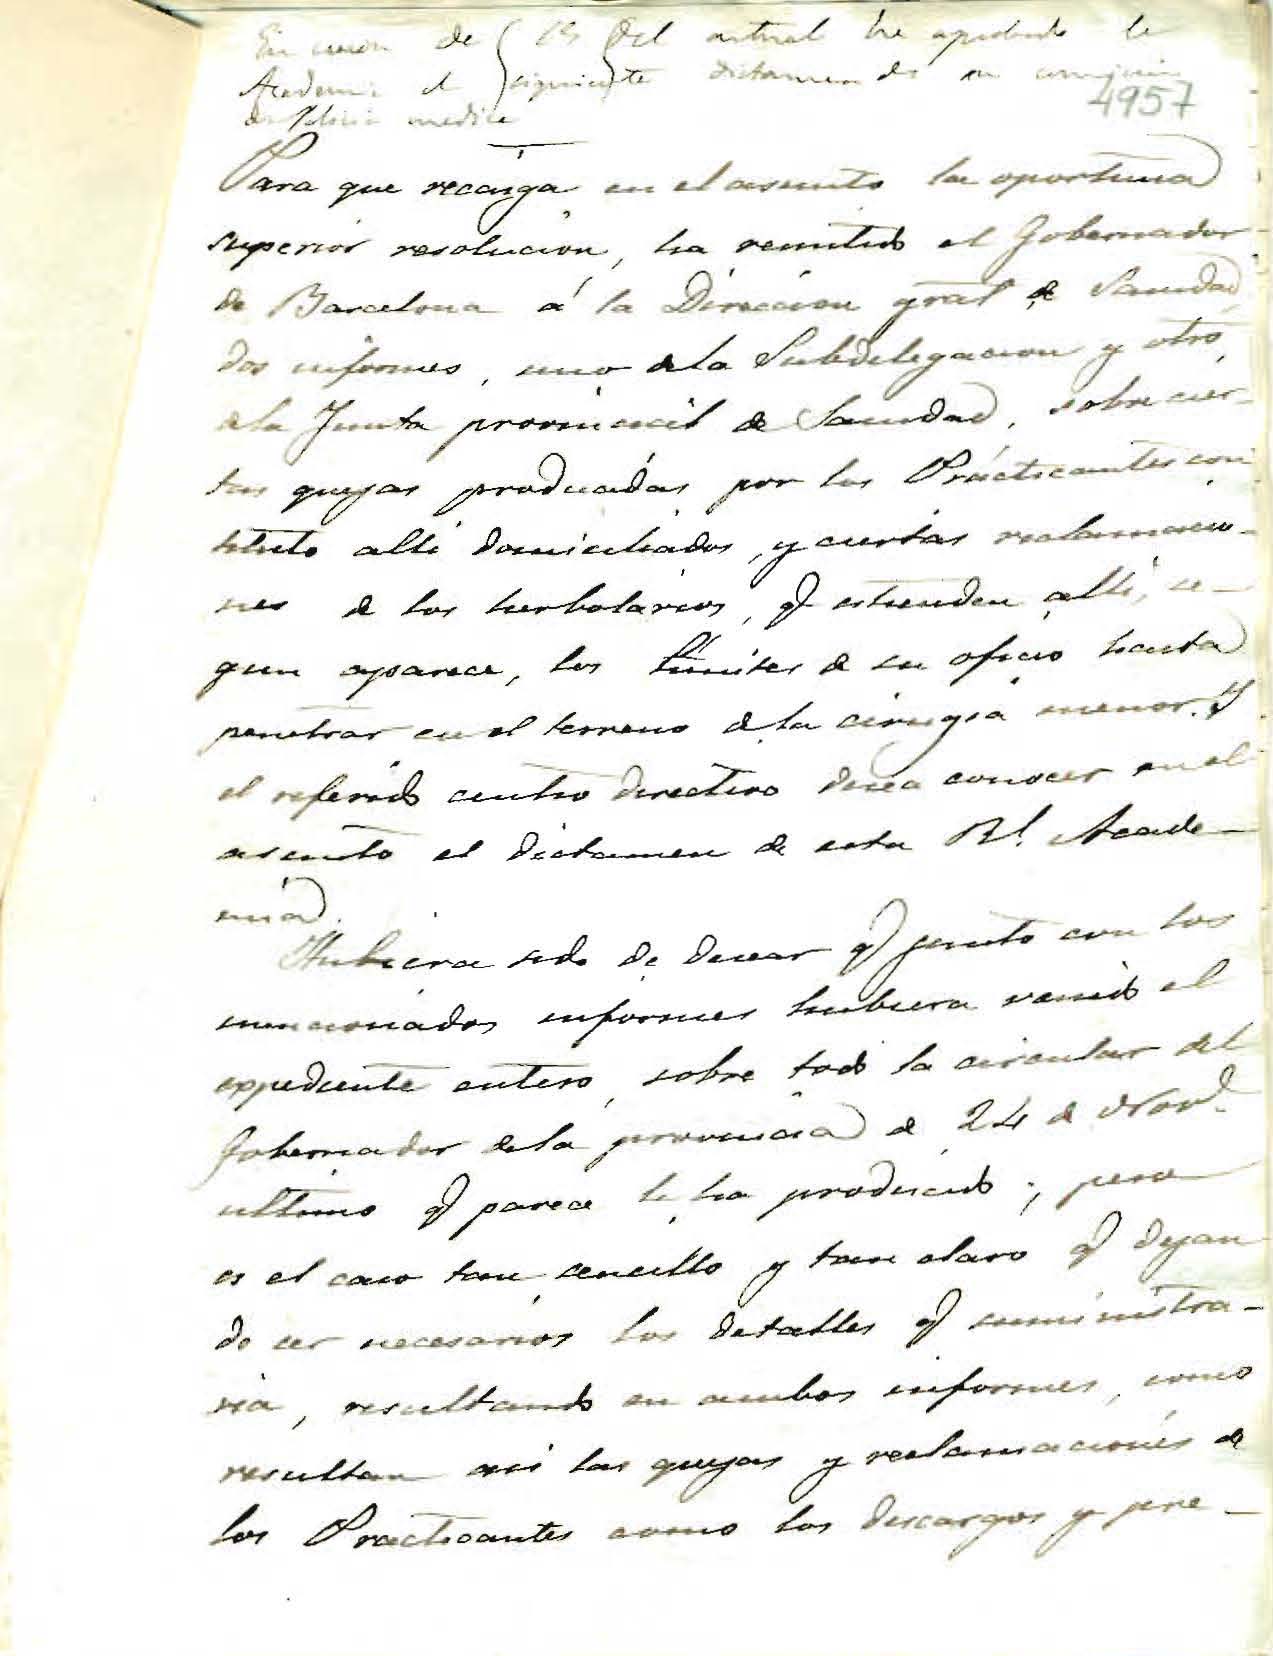 En sesion de 15 del actual ha aprobado la
Academia el siguiente dictamen de su comision
de Policia medica
4957
Para que recaiga en el asunto la oportuna
superior resolucion, ha remitido el Gobernador
de Barcelona á la Direccion gral de Sanidad
dos informes, uno de la Subdelegacion y otro
de la Junta provincial de Sanidad, sobre cier-
tas quejas producidas por los Practicantes con
titulo alli domiciliados, y ciertas reclamacio-
nes de los herbolarios, q estienden alli, se-
gun aparece, los límites de su oficio hasta
penetrar en el terreno de la cirugia menor. Y
el referido centro directivo desea conocer en el
asunto el dictamen de esta Rl. Acade-
mia.
Hubiera sido de desear q junto con los
mencionados informes hubiera venido el
expediente entero, sobre todo la circular del
Gobernador de la provincia de 24 de Nove.
ultimo q parece le ha producido; pero
es el caso tan sencillo y tan claro q dejan
de ser necesarios los detalles q suministra-
ria, resultando en ambos informes, como
resultan asi las quejas y reclamaciones de
los Practicantes como los descargos y pre-